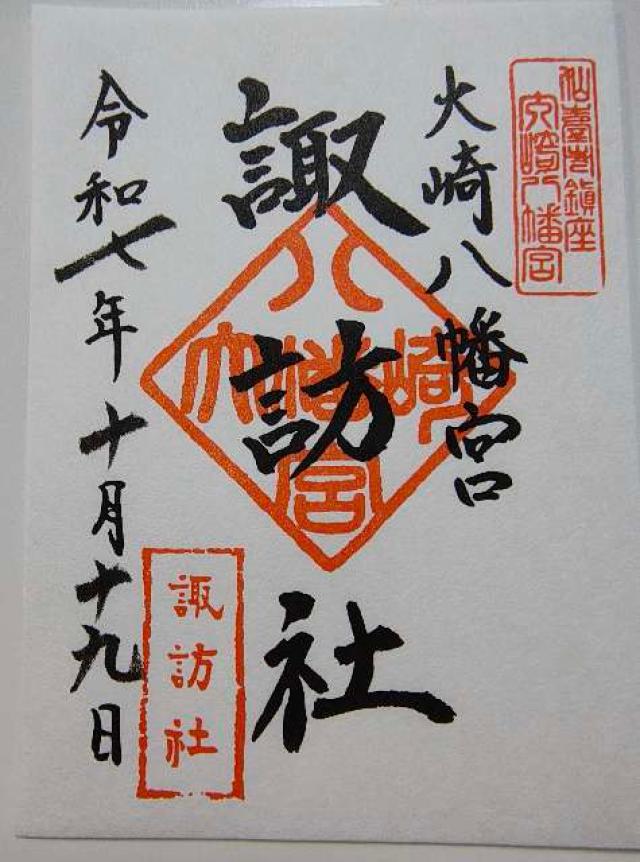 仙臺市鎮座
大崎八幡宮
大崎八幡宮
諏訪社
八幡宮大崎
諏訪社
令和七年十月十九日